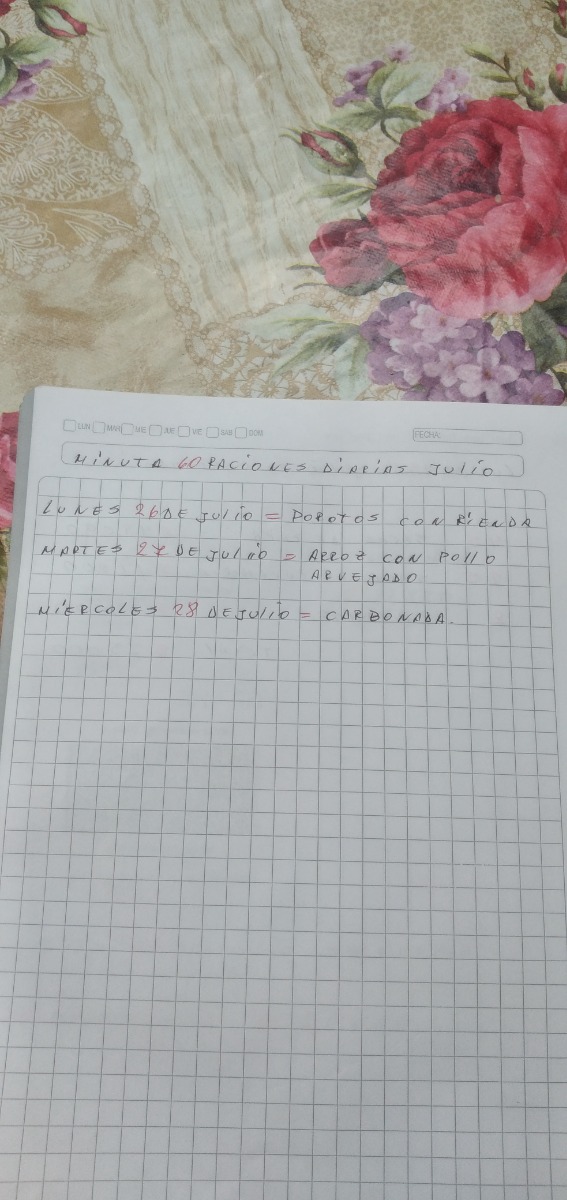 LUN MAR MIE JUE VIE SAB DOM
FECHA:
MINUTA 60 RACIONES DIARIAS JULIO
LUNES 26 DE JULIO = POROTOS CON RIENDA
MARTES 27 DE JULIO = ARROZ CON POLLO
ARVEJADO
MIERCOLES 28 DE JULIO = CARBONADA.